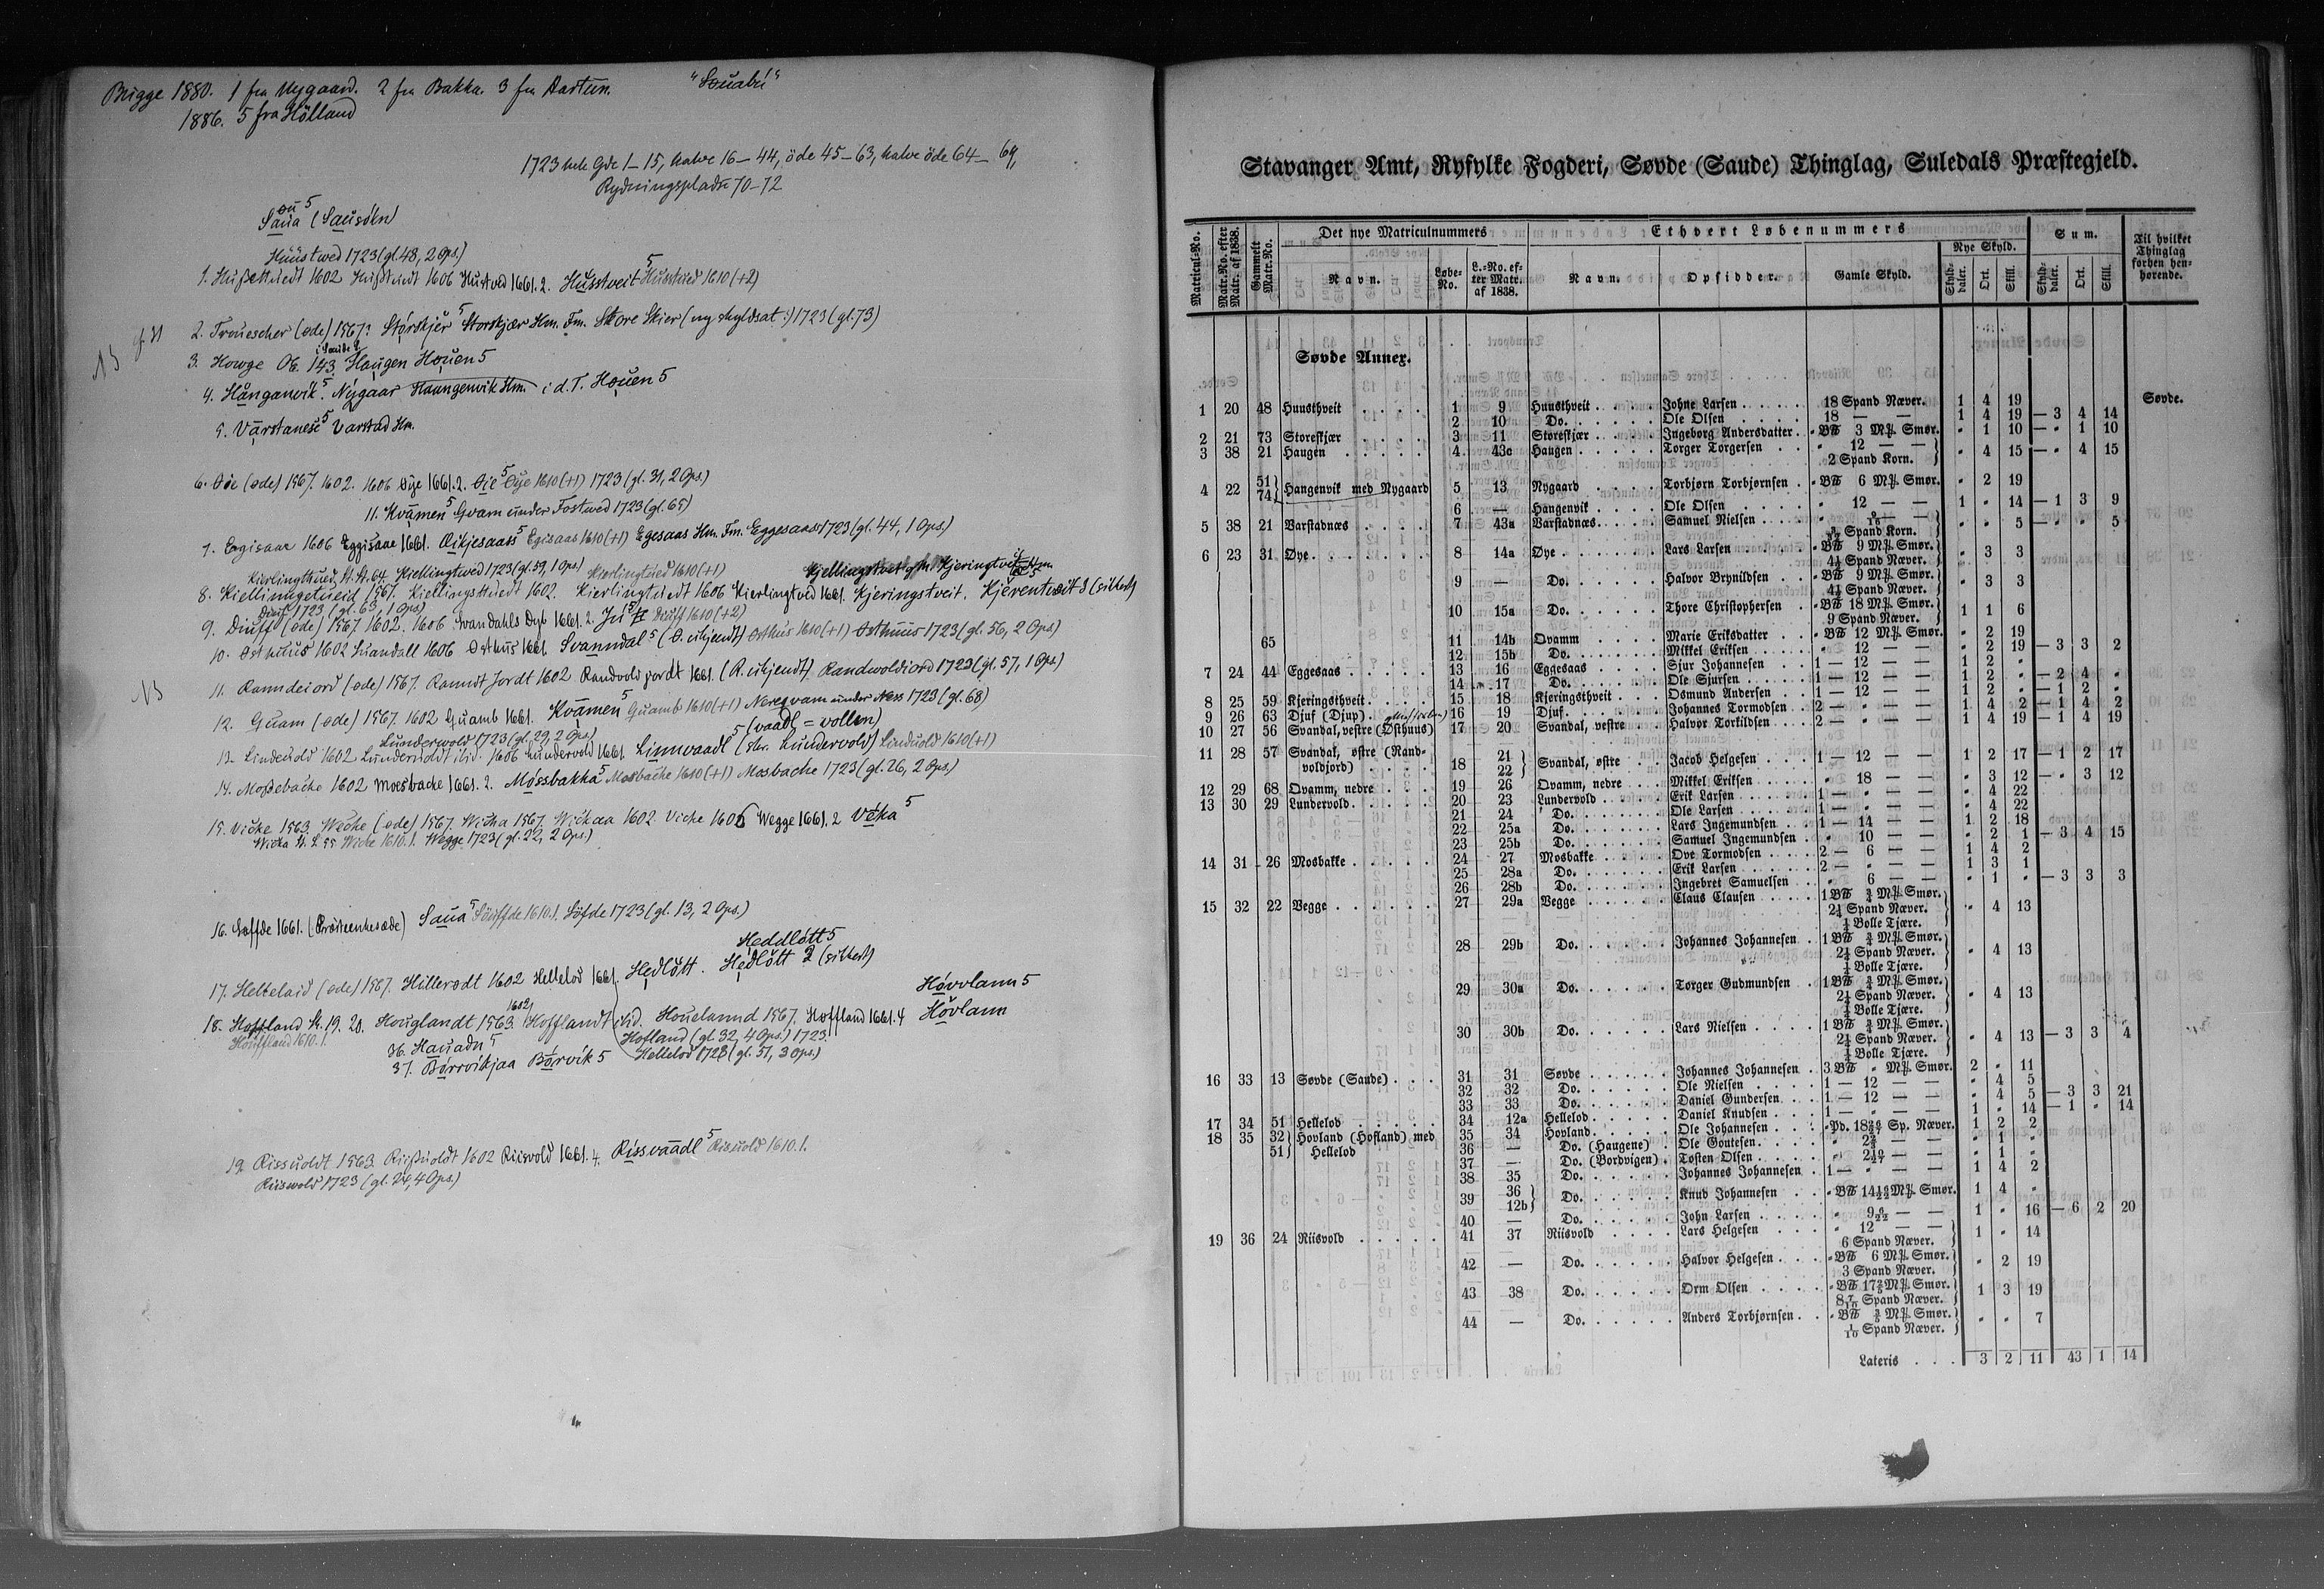 Brigge 1880. 1 fra Nygaard. 2 fra Bakka. 3 fra Aartun. "Souabú"
1886. 5 fra Hölland
1723 hele Gde 1–15, halve 16–44, öde 45–63, halve öde 64–69,
Rydningspladse 70–72
Saua (Sausókn)
Húústwed 1723 (gl. 48, 2 Ops.)
2. Trouescher (øde) 1567? Storskjer Storskjær Hm. Fm. Store Skier (ny skyldsat:) 1723 (gl. 73)
3. Howge OE. 143. Haugen Houen 5
4. Hånganvik. Nýgaar Haungenvik Hm. i d. T. Houen 5
5. Varstanese Varstad Hm.
6. Øie (øde) 1567. 1602. 1606 Øye 1661.2. Øie Øye 1610 (+1) 1723 (gl. 31, 2 Ops.)
11. Kvämen Qvam under Fostwed 1723 (gl. 65)
7. Egisaar 1606 Eggisaae 1661. Eikjesaas Egisaas 1610 (+1) Egesaas Hm. Fm. Eggesaas 1723 (gl. 44, 1 Ops.)
Kiellingtwed 1723 (gl. 59, 1 Ops) Kierlingtued 1610 (+1)
8. Kiellinngetueid 1567. Kiellingsttuedt 1602. Kierlingtuedt 1606 Kierlingtved 1661. Kjeringstveit.
Diuf 1723 (gl. 63, 1 Ops)
9. Diuff (øde) 1567. 1602. 1606. Svandahls Dyb 1661. 2. Diuff 1610 (+2)
10. Osthuus 1602 Suandall 1606 Osthus 1661. Svanndal 5 (O. ukjendt) Osthus 1610 (+1) Osthuus 1723 (gl. 56, 2 Ops)
11. Ranndeiord (øde) 1567. Ranndt Jordt 1602 Randvold jordt 1661. (R. ukjendt) Randwoldiord 1723 (gl. 57, 1 Ops.)
12. Guam (øde) 1567. 1602 Guamb 1661. Kvämen Guamb 1610 (+1) Nereqvam under Næss 1723 (gl. 68)
Lunderwold 1723 (gl. 29, 2 Ops.) 5 (vaadl = vollen)
13. Linderold 1602 Lunderuoldt ibid. 1606 Lundervold 1661. Linnvaadl (skr. Lundervold) Linduold 1610 (+1)
14. Moßebache 1602 Mosbache 1661. 2. Mossbakka Mosbache 1610 (+1) Mosbache 1723 (gl. 26, 2 Ops.)
15. Vicke 1563. Wecke (øde) 1567. Wicka 1567. Wickaa 1602. Viche 1606 Wegge 1661. 2 Véka 5
Wicke 1610. 1. Wegge 1723 (gl. 22, 2 Ops.)
16. Soffde 1661. (Præsteenkesæde) Saua Söuffde 1610. 1. Söfde 1723 (gl. 13, 2 Ops.)
Heddlött 5
17. Heltelaid (øde) 1567. Hillerodt 1602 Hellelod 1661. Hedlött. Hedlött 2 (sikkert)
Høvvlann 5
18. Hoffland St. 19. 20. Houglandt 1563. Hofflandt ibid. Houelannd 1567. Hoffland 1661. 4 Hövlann
1602
Houffland 1610. 1. Hofland (gl. 32, 4 Ops.) 1723.
36. Hauadn 5
37. Børrvikjaa Børvik 5 Hellelod 1723 (gl. 51, 3 Ops.)
19. Rissuoldt 1563. Rißuoldt 1602 Riisvold 1661. 4. Rissvaadl 5 Risuold 1610. 1.
Riiswold 1723 (gl. 24, 4 Ops.)
Stavanger Amt, Ryfylke Fogderi, Søvde (Saude) Thinglag, Suledals Præstegjeld.
Matricul-No. Matr.No. efter Matr. af 1838. Gammelt Matr.No. Det nye Matriculnummers Ethvert Løbenummers Sum. Til hvilket Thinglag forhen henhørende.
Navn. Løbe-No. L.-No. efter Matr. af 1838. Navn. Opsidder. Gamle Skyld. Nye Skyld.
Skylddaler. Ort. Skill. Skylddaler. Ort. Skill.
Søvde Annex.
1 20 48 Huusthveit . . . . 1 9 Huusthveit . . . . Johne Larsen . . . . . 18 Spand Næver. 1 4 19 Søvde.
2 10 Do. . . . . . Ole Olsen . . . . . 18 — — 1 4 19 — 3 4 14
2 21 73 Storeskjær . . . . 3 11 Storeskjær . . . . Ingeborg Andersdatter . " B℔ 3 Mß. Smør. " 1 10 — " 1 10
3 38 21 Haugen . . . . . 4 43c Haugen . . . . . Torger Torgersen . . " 12 — — } " 4 15 — " 4 15
2 Spand Korn.
4 22 51 74} Hangenvik med Nygaard 5 13 Nygaard . . . . Torbjørn Torbjørnsen . " B℔ 6 Mß. Smør. " 2 19
6 — Hangenvik . . . . Ole Olsen . . . . . " 12 — — 1 " 14 — 1 3 9
5 38 21 Varstadnæs . . . . 7 43a Varstadnæs . . . . Samuel Nielsen . . . . " " " 5 — " " 5
Spand Korn.
6 23 31 Øye . . . . . . 8 14a Øye . . . . . . Lars Larsen . . . . " B℔ 9 Mß. Smør. } " 3 3
4½ Spand Næver.
9 — Do. . . . . . Halvor Brynildsen . . " B℔ 9 Mß. Smør. } " 3 3
4½ Spand Næver.
10 15a Do. . . . . . Thore Christophersen . " B℔ 18 Mß. Smør. } 1 1 6
9 Spand Næver.
65 11 14b Qvamm . . . . Marie Eriksdatter . . " B℔ 12 Mß. Smør. " 2 19
12 15b Do. . . . . . Mikkel Eriksen . . . " 12 — — " 2 19 — 3 3 2
7 24 44 Eggesaas . . . . . 13 16 Eggesaas . . . . Sjur Johannesen . . 1 — 12 — — 1 2 "
14 17 Do. . . . . . Ole Sjursen . . . . 1 — 12 — — 1 2 " — 2 4 "
8 25 59 Kjeringsthveit . . . . 15 18 Kjeringsthveit . . . Osmund Andersen . . 1 — 12 — — 1 2 " — 1 2 "
9 26 63 Djuf (Djup) . 16 19 Djuf . . . . . . Johannes Tormodsen . . 2 — " — — 1 4 2 — 1 4 2
10 27 56 Svandal, vestre (Østhuus) 17 20 Svandal, vestre . . Halvor Torkildsen . . 2 — " — — 1 4 19 — 1 4 19
11 28 57 Svandal, østre (Rand-
voldjord) . . . . 18 21 22 } Svandal, østre . . . Jacob Helgesen . . . 1 — 12 — — 1 2 17 — 1 2 17
12 29 68 Qvamm, nedre . . . 19 26 Qvamm, nedre . . . Mikkel Eriksen . . . " 18 — — " 3 12 — " 3 12
13 30 29 Lundervold . . . . . 20 23 Lundervold . . . . Erik Larsen . . . . 1 — " — — " 4 22
21 24 Do. . . . . . Ole Larsen . . . . 1 — " — — " 4 22
22 25a Do. . . . . . Lars Ingemundsen . . 1 — 14 — — 1 2 18
23 25b Do. . . . . . Samuel Ingemundsen . " 10 — — " 2 1 — 3 4 15
14 31 26 Mosbakke . . . . . 24 27 Mosbakke . . . . Ove Tormodsen . . . 2 — 6 — — 1 4 2
25 28a Do. . . . . . Erik Larsen . . . . 2 — " — — 1 3 1
26 28b Do. . . . . . Ingebret Samuelsen . . " 6 — — " 1 " — 3 3 3
15 32 22 Vegge . . . . . . 27 29a Vegge . . . . . Claus Clausen . . . . 1 B℔ ¾ Mß. Smør. } " 4 13
2¼ Spand Næver.
¼ Bolle Tjære.
28 29b Do. . . . . . Johannes Johannesen . 1 B℔ ¾ Mß. Smør. } " 4 13
2¼ Spand Næver.
¼ Bolle Tjære.
29 30a Do. . . . . . Torger Gudmundsen . 1 B℔ ¾ Mß. Smør. } " 4 13
2¼ Spand Næver.
¼ Bolle Tjære.
30 30b Do. . . . . . Lars Nielsen . . . . 1 B℔ ¾ Mß. Smør. } " 4 13 — 3 3 4
2¼ Spand Næver.
¼ Bolle Tjære.
16 33 13 Søvde (Saude) . . . 31 31 Søvde . . . . . Johannes Johannesen . 3 B℔ " Mß. Smør. 2 " 11
32 32 Do. . . . . . Ole Nielsen . . . . 1 — 12 — — " 4 5
33 33 Do. . . . . . Daniel Gundersen . . 1 — 12 — — " 4 5 — 3 3 21
17 34 51 Hellelod . . . . . 34 12a Hellelod . . . . Daniel Knudsen . . . 1 — " — — 1 " 14 — 1 " 14
18 35 32 51} Hovland (Hofland) med 35 34 Hovland . . . . . Ole Johannesen . . . Sp. Næver. 1 2 2
Hellelod 36 — Do. (Haugene) . Ole Goutesen . . . . " 1 "
37 — Do. (Bordvigen) . Tosten Olsen . . . . " 1 "
38 35 Do. . . . . . Johannes Johannesen . 1 — " — — 1 4 2
39 36 12b } Do. . . . . . Knud Johannesen . . Mß. Smør. 1 4 "
40 — Do. . . . . . John Larsen . . . . 1 " 16 — 6 2 20
19 36 24 Riisvold . . . . . 41 37 Riisvold . . . . Lars Helgesen . . . " 12 — — } 1 " 14
6 Spand Næver.
42 — Do. . . . . . Halvor Helgesen . . . " B℔ 6 Mß. Smør. } " 2 19
3 Spand Næver.
43 38 Do. . . . . . Orm Olsen . . . . Mß. Smør. } 1 3 19
8 7/10 Spand Næver.
44 — Do. . . . . . Anders Torbjørnsen . . Mß. Smør. } " " 7
1/10 Spand Næver.
Lateris . . . 3 2 11 43 1 14